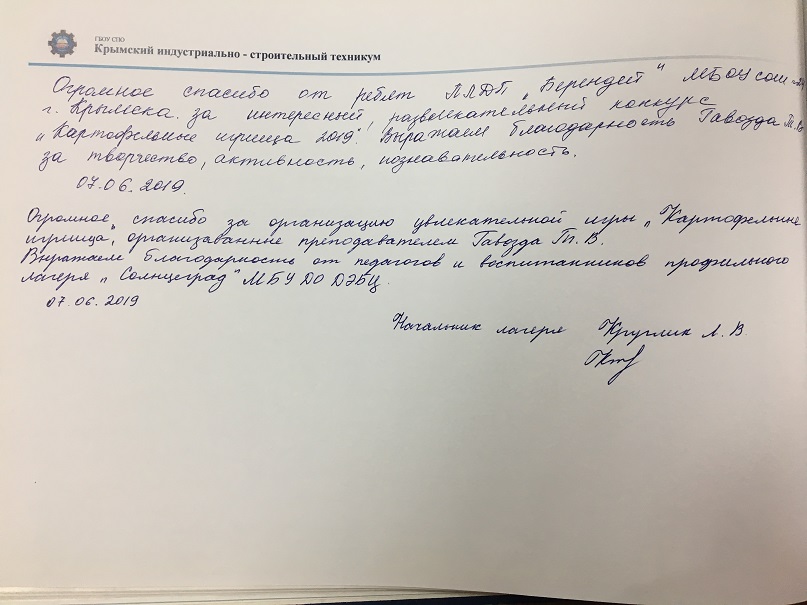 ГБОУ СПО
Крымский индустриально - строительный техникум
Огромное спасибо от ребят ЛЛДП "Берендей" МБОУ сош
г. Крымска за интересный, развлекательный конкурс
"Картофельные игрища 2019". Выражаем благодарность Гавозда Т. В.
за творчество, активность, познавательность.
07.06.2019.
Огромное спасибо за организацию увлекательной игры "Картофельные
игрища", организаванные преподавателем Гавозда Т. В.
Выражаем благодарность от педагогов и воспитанников профильного
лагеря "Солнцеград" МБУ ДО ДЭБЦ.
07.06.2019
Начальник лагеря Круглик Л. В.